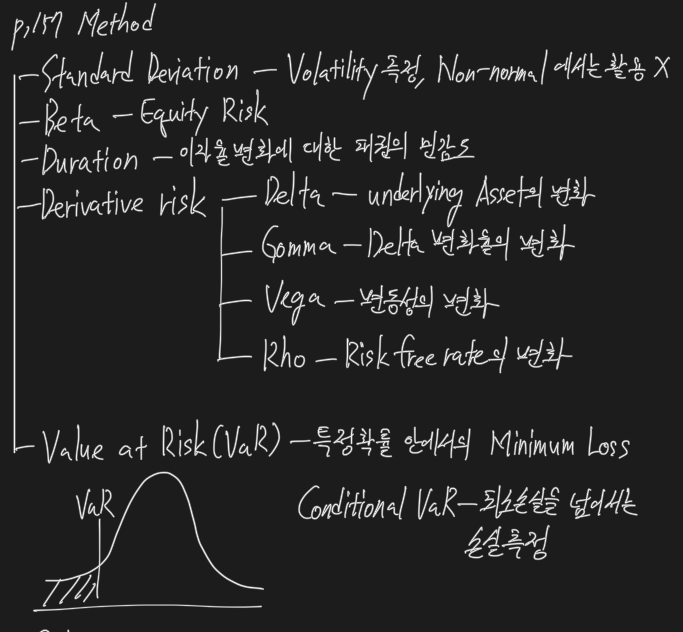 p.157 Method
Standard Deviation - Volatility 측정, Non-normal 에서는 활용 X
Beta - Equity Risk
Duration - 이자율 변화에 대한 채권의 민감도
Derivative risk - Delta - underlying Asset의 변화
Gomma - Delta 변화율의 변화
Vega - 변동성의 변화
Rho - Risk free rate의 변화
Value at Risk (VaR) - 특정확률 안에서의 Minimum Loss
VaR
Conditional VaR - 최소손실을 넘어서는
손실측정